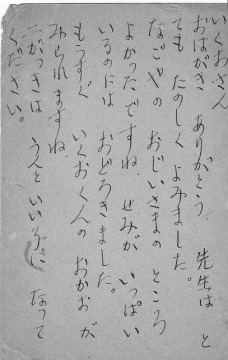 いくおさん
おはがき ありがとう 先生は と
ても たのしく よみました。
なごやの おじいさまの ところ
よかったですね せみが いっぱい
いるのには おどろきました。
もうすぐ いくおくんの おかおが
みられますね、
二がっきは うんといい子に なって
ください。